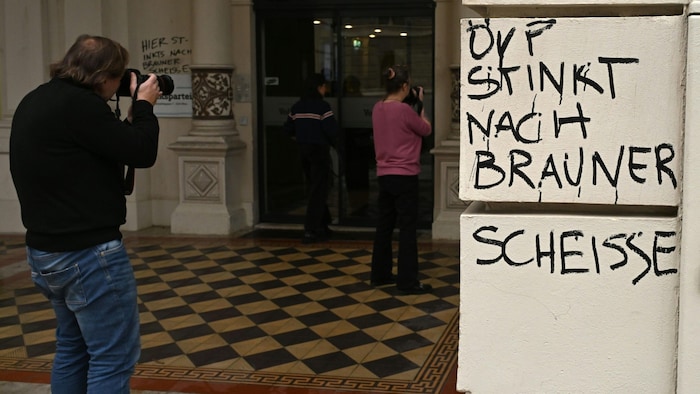 HIER ST-
INKTS NACH
BRAUNER
SCHEISSE
ÖVP
STINKT
NACH
BRAUNER
SCHEISSE